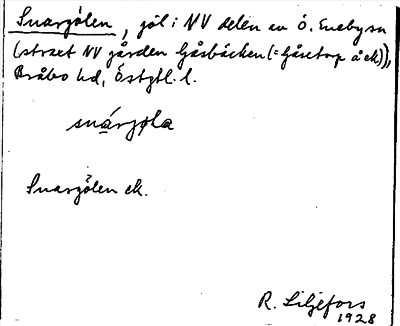 Snargölen, göl i NV delen av Ö. Eneby sn
(straxt NV gården Gåsbäcken (= Gåsetorp å ek)),
Bråbo hd, Östgtl. l.
snárgøla
Snargölen ek.
R. Liljefors
1928